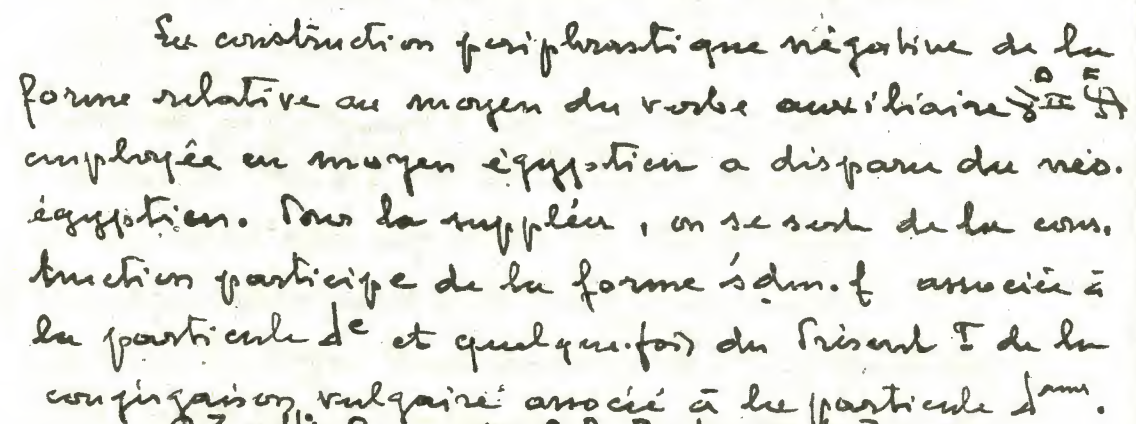 La construction périphrastique négative de la
forme relative au moyen du verbe auxiliaire
employée en moyen égyptien a disparu du néo-
égyptien. Pour la suppléer, on se sert de la cons-
truction participe de la forme śdm.f associée à
la particule et quelquefois du Présent I de la
conjugaison vulgaire associé à la particule